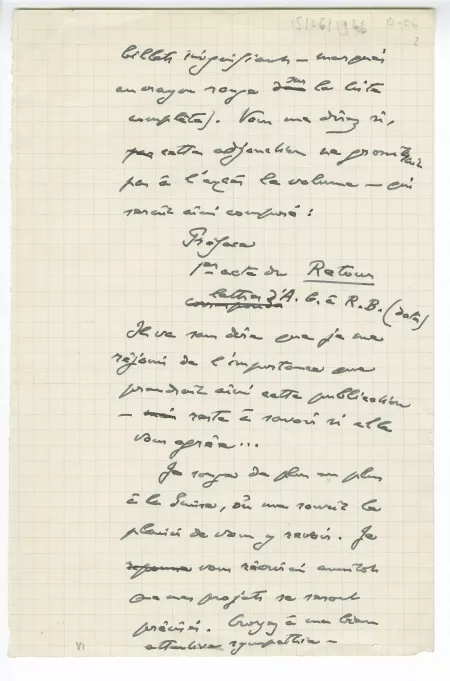 2
billets insignifiants – marqués
au crayon rouge dans sur la liste
complète). Vous me direz si,
par cette adjonction ne grossirait
pas à l'excès le volume – qui
serait ainsi composé :
Préface
1er acte de Retour
correspondance lettres d'A. G. à R.B. (date)
Il va sans dire que je me
réjouis de l'importance que
prendrait ainsi cette publication
– mais reste à savoir si elle
vous agrée...
Je songe de plus en plus
à la Suisse, où me sourit le
plaisir de vous y revoir. Je
vous récrirai aussitôt
que mes projets se seront
précisés. Croyez à ma bien
attentive sympathie –
VI